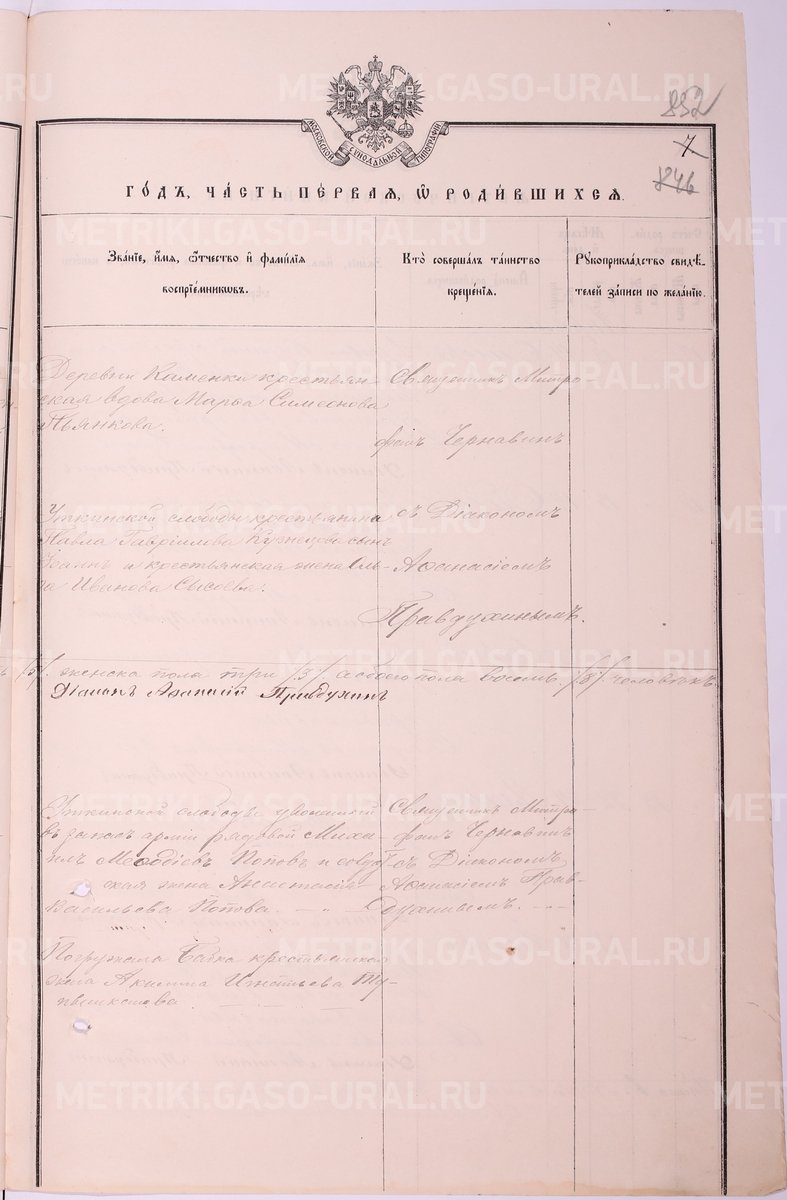 852
7
846
МОСКОВСКОЙ СѴНОДАЛЬНОЙ ТИПОГРАФІИ
ГО́ДЪ, ЧА́СТЬ ПЕ́РВАЯ, Ѡ҆ РОДИ́ВШИХСЯ.
Зва́нїе, и҆́мя, ѻ҆́тчество и҆ фами́лїя
воспрїе́мникѡвъ.
Кто̀ соверша́лъ та́инство
креще́нїя.
Рꙋкоприкла́дство свидѣ́-
телей за́писи по жела́нїю.
Деревни Каменки крестьян-
ская вдова Марѳа Симеонова
Пьянкова.
Священникъ Митро-
фанъ Чернавинъ
Уткинской слободы крестьянина
Павла Гавріилова Кузнецова сынъ
Іоаннъ и крестьянская жена
Иванова Сысоева.
съ Діакономъ
Аѳанасіемъ
Правдухинымъ.
/5/. женска пола три /3/. обоего пола восемь /8/. человѣкъ.
Діаконъ Аѳанасій Правдухинъ
Уткинской слободы уволенный
въ запасъ арміи рядовой Миха-
илъ Меѳодіевъ Поповъ и
жена Анастасія
Васильева Попова.
Священникъ Митро-
фанъ Чернавинъ
съ Діакономъ
Аѳанасіемъ Прав-
духинымъ.
Погружала бабка крестьянская
жена Акилина Игнатьева
METRIKI.GASO-URAL.RU